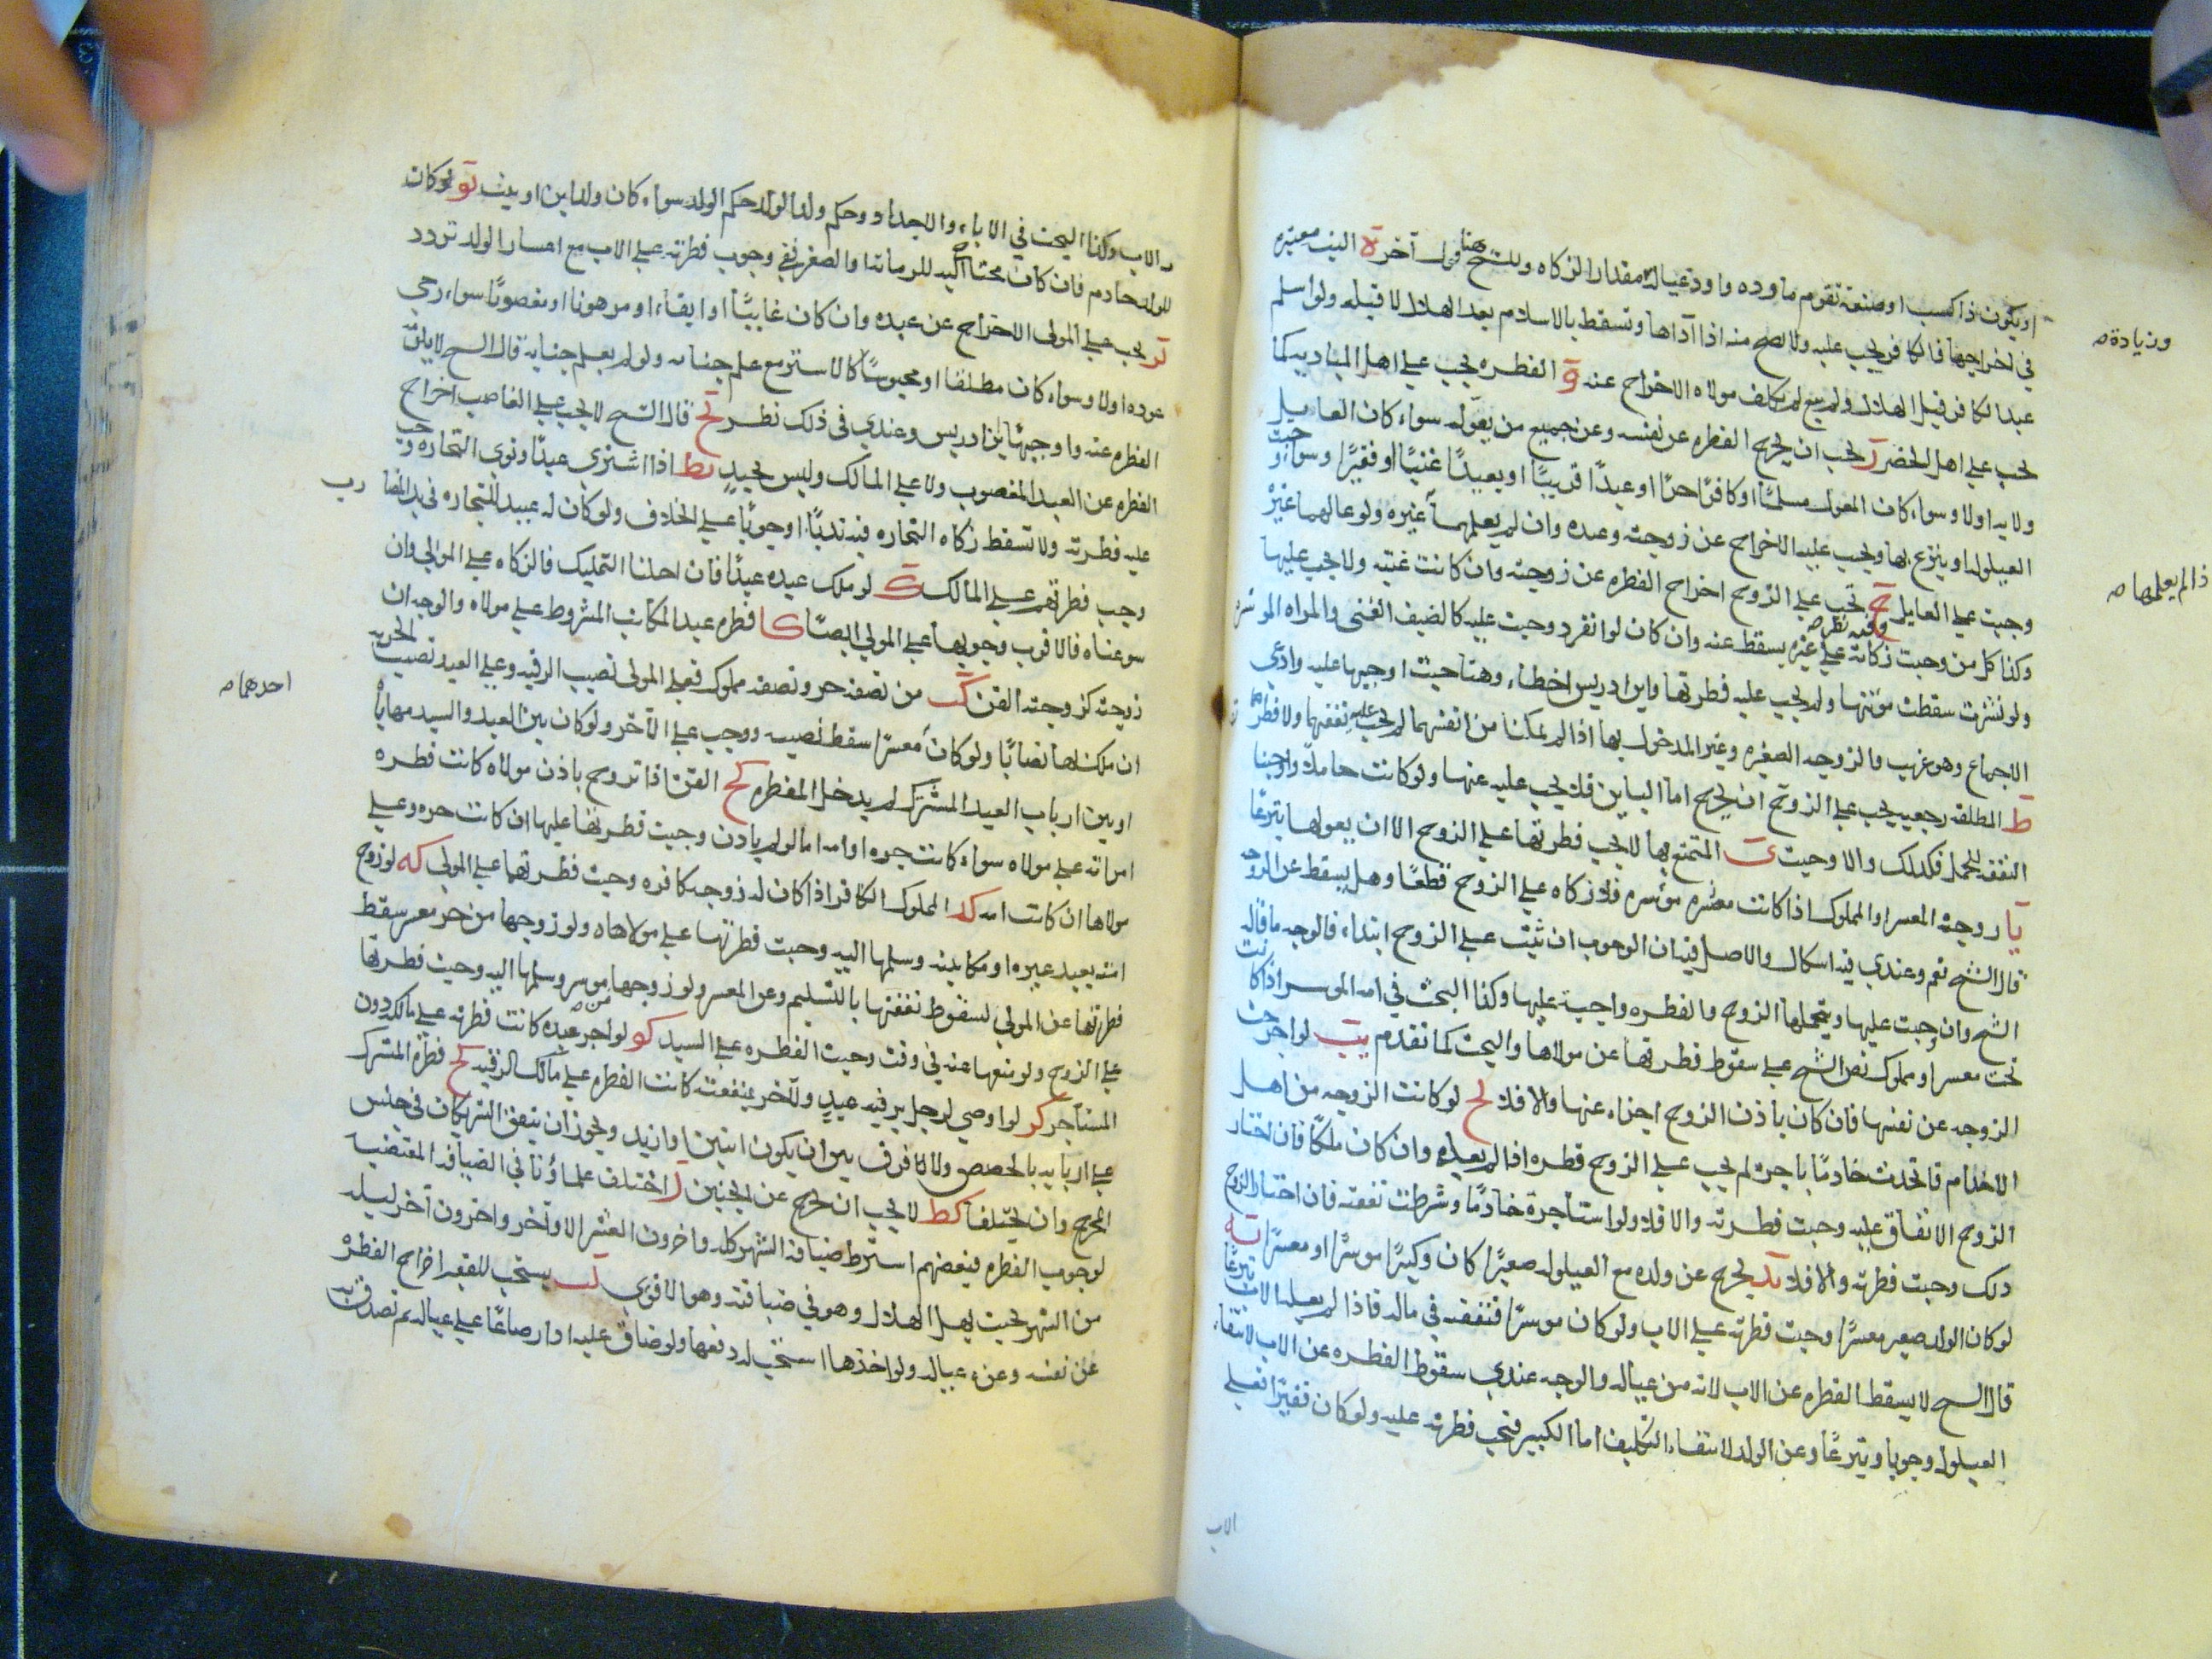 او يكون ذا كسب او صنعة تقوم ماوده واود عياله مقدار الزكاه وللشيخ هنا قول آخر ة النيه معتبره
وزيادة
في اخراجها فالكافر يجب عليه ولا تصح منه اذا اداها وتسقط بالاسلام بعد الهلال لا قبله ولو اسلم
عبد الكافر قبل الهلال ولم يبع لم يكلف مولاه الاخراج عنه و الفطره تجب علي اهل الباديه كما
تجب علي اهل الحضر ز يجب ان يخرج الفطره عن نفسه وعن جميع من يعوله سواء كان العايل
ولايه اولا وسواء كان المعول مسلمًا او كافرًا حرًا او عبدًا قريبًا او بعيدًا غنيًا او فقيرًا وسواء وجبت
العيلوله او تبرع بها ويجب عليه الاخراج عن زوجته وعبده وان لم يعلهما غيره ولو عالهما غيره
ذا لم يعلهما
وجبت علي العايل ح تجب علي الزوج اخراج الفطره عن زوجته وان كانت غنيه ولا يجب عليها
وكذا كل من وجبت زكاته علي غيره يسقط عنه وان كان لو انفرد وجبت عليه كالضيف الغني والمراه الموسره وفيه نظر
ولو نشزت سقطت مونتها ولم يجب عليه فطرتها وابن ادريس اخطاء هنا حيث اوجبها عليه وادعي
الاجماع وهو غريب والزوجه الصغيره وغير المدخول بها اذا لم يمكنا من انفسهما لم يجب عليه نفقتهما ولا فطرتهما
ط المطلقه رجعيه يجب علي الزوج ان يخرج اما الباين فلا يجب عليه عنها ولو كانت حاملا واوجبنا
النفقه للحمل فكذلك والا وجبت ى المتمتع بها لا يجب فطرتها علي الزوج الا ان يعولها تبرعًا
يا زوجة المعسر او المملوك اذا كانت معسره موسره فلا زكاه علي الزوج قطعًا وهل يسقط عن الزوجه
قال الشيخ نعم وعندي فيه اشكال والاصل فيه ان الوجوب ان ثبت علي الزوج ابتداء فالوجه ما قاله
الشيخ وان وجبت عليها ويتحملها الزوج فالفطره واجبة عليها وكذا البحث في امه الموسر اذا كانت
تحت معسر او مملوك نص الشيخ علي سقوط فطرتها عن مولاها والبحث كما تقدم يب لو اخرجت
الزوجه عن نفسها فان كان باذن الزوج اجزاء عنها والا فلا يج لو كانت الزوجه من اهل
الاخدام فاتخذت خادمًا باجره لم يجب علي الزوج فطره اذا لم يعله وان كان ملكًا فان اختار
الزوج الانفاق عليه وجبت فطرته والا فلا ولو استاجرة خادمًا وشرطت نفقته فان اختار الزوج
ذلك وجبت فطرته والا فلا يد يخرج عن ولده مع العيلوله صغيرًا كان وكبيرًا موسرًا او معسرًا يه
لو كان الولد صغير معسرًا وجبت فطرته علي الاب ولو كان موسرًا فنفقته في ماله فاذا لم يعله الاب تبرعًا
قال الشيخ لا يسقط الفطره عن الاب لانه من عياله والوجه عندي سقوط الفطره عن الاب لانتفاء
العيلوله وجوبا وتبرعًا وعن الولد لانتفاء التكليف اما الكبير فتجب فطرته عليه ولو كان فقيرًا فعلي
الاب
الاب وكذا البحث في الاباء والاجداد وحكم ولد الولد حكم الولد سواء كان ولد ابن او بنت يو لو كان
للولد خادم فان كان محتاجًا اليه للزمانه او الصغر ففي وجوب فطرته علي الاب مع اعسار الولد تردد
يز يجب علي المولي الاخراج عن عبده وان كان غايبًا او ابقاء او مرهونا او مغصوبًا سواء رجي
عوده اولا وسواء كان مطلقا او محبوسًا كالاسير مع علم حياته ولو لم يعلم حياته قال الشيخ لا يلزم
الفطره عنه واوجبها ابن ادريس وعندي في ذلك نظر يح قال الشيخ لا يجب علي الغاصب اخراج
الفطره عن العبد المغصوب ولا علي المالك وليس بجيدٍ يط اذا اشتري عبدًا ونوي التجاره وجب
عليه فطرته ولا تسقط زكاه التجاره فيه ندبًا او وجوبًا علي الخلاف ولو كان له عبيد للتجاره في يد المضارب
وجب فطرتهم علي المالك ك لو ملك عبده عبدًا فان احلنا التمليك فالزكاه علي المولي وان
سوغناه فالاقرب وجوبها علي المولي ايضًا كا فطره عبد المكاتب المشروط علي مولاه والوجه ان
زوجته كزوجته القن كب من نصفه حر ونصفه مملوك فعلي المولي نصيب الرقيه وعلي العبد نصيب الحريه
احدهما
ان ملك بها نصابًا ولو كان معسرًا سقط نصيبه ووجب علي الآخر ولو كان بين العبد والسيد مهاياة
او بين ارباب العبد المشترك لم يدخل الفطره كج القن اذا تزوج باذن مولاه كانت فطره
امراته علي مولاه سواء كانت حره او امه اما لو لم ياذن وجبت فطرتها عليها ان كانت حره وعلي
مولاها ان كانت امه كد المملوك الكافر اذا كان له زوجه كافره وجبت فطرتها علي المولي كه لو زوج
امته بعبد غيره او مكاتبه وسلمها اليه وجبت فطرتها علي مولاها ولو زوجها من حر معسر سقط
فطرتها عن المولي لسقوط نفقتها بالتسليم وعن المعسر ولو زوجها من موسر وسلمها اليه وجبت فطرتها
علي الزوج ولو منعها عنه في وقت وجبت الفطره علي السيد كو لو اجر عبده كانت فطرته علي مالكه دون
المستاجر كز لو اوصي لرجل برقبه عبدٍ ولآخر بمنفعته كانت الفطره علي مالك الرقبه كح فطره المشترك
علي اربابه بالحصص ولا فرق بين ان يكون اثنين او ازيد ويجوز ان يتفق الشريكان في جنس
المخرج وان يختلفا كط لا يجب ان يخرج عن الجنين ل اختلف علماؤنا في الضيافه المقتضيه
لوجوب الفطره فبعضهم اشترط ضيافه الشهر كله واخرون العشر الاواخر واخرون آخر ليله
من الشهر بحيث يهل الهلال وهو في ضيافته وهو الاقوي لا يستحب للفقير اخراج الفطره
عن نفسه وعن عياله ولو اخذها استحب له دفعها ولو ضاق عليه ادار صاعًا علي عياله ثم تصدق به